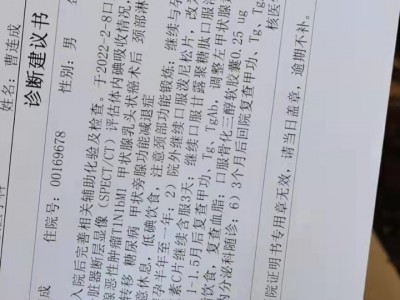 姓名: 曹连成
诊断建议书
住院号: 00169678 性别: 男
成
入院后完善相关辅助化验及检查。于2022-2-8口
脏器断层显像 (SPECT/CT) 评估体内碘吸收情况,
腺恶性肿瘤T1N1bM1 甲状腺乳头状癌术后 颈部淋
转移 糖尿病 甲状旁腺功能减退症
意休息, 低碘饮食, 注意颈部功能锻炼; 继续与孕
孕半年至一年; 2) 院外继续口服泼尼松片, 改为
素C片继续含服3天; 继续口服甘露聚糖肽口服溶
1-1.5月后复查甲功、Tg、TgAb, 调整左甲状腺素
脂饮食, 复查血脂; 口服骨化三醇软胶囊0.25 ug
内分泌科随诊; 6) 3个月后回院复查甲功、Tg、Tg
核医
院证明书专用章无效, 请当日盖章, 逾期不补。